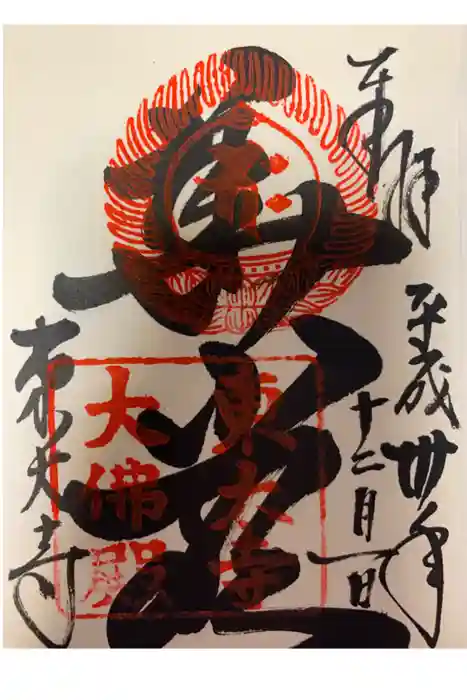 奉拝
平成卅年
十二月一日
華厳
東大寺
大佛殿
東大寺